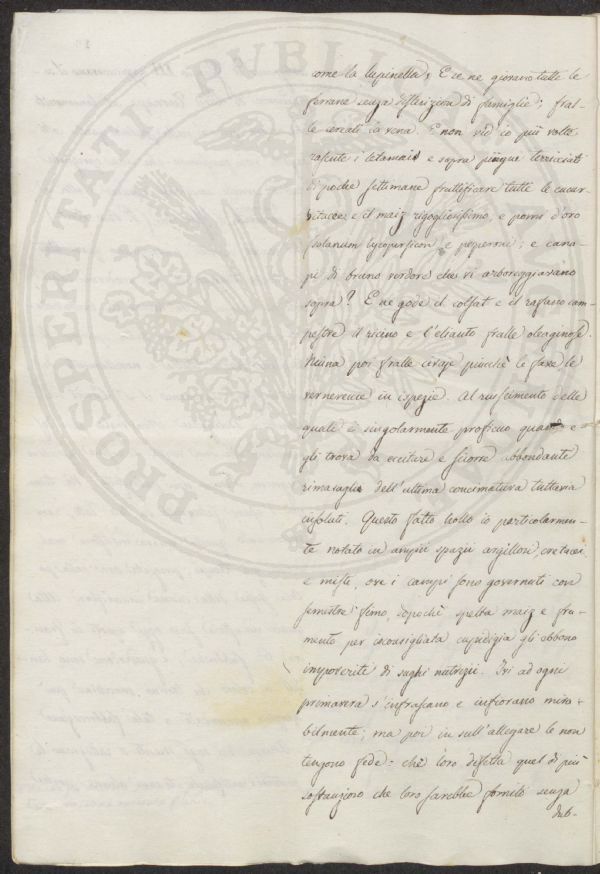 PROSPERITATI PVBLICAE
come la lupinella; E se ne giovano tutte le
ferrane senza distinzion di famiglie; fral-
le cereali la vena. E non vid'io più volte
rasente i letamai e sopra pingui terricciati
di poche settimane fruttificare tutte le cucur-
bitacee e il maiz rigogliosissimo, e pomi d'oro
(solanum lycopersicon) e peperoni; e cana-
pi di bruno verdore che vi arboreggiavano
sopra? E ne gode il colsat e il rafano cam-
pestre il ricino e l'elianto fralle oleaginose.
Niuna poi fralle civaje piucchè le fave le
vernerecce in ispezie. Al nascimento delle
quali è singolarmente proficuo quando e
gli trova da eccitare e sciorre abbondante
rimasuglio dell'ultima concimatura tuttavia
insoluti. Questo fatto hollo io particolarmen-
te notato in ampii spazii argillosi, cretacei
e misti, ove i campi sono governati con
semestre fimo, dopochè spelta maiz e fru-
mento per inconsigliata cupidigia gli ebbono
impoveriti di sughi nutrizii. Ivi ad ogni
primavera s'infrascano e infiorano mira-
bilmente; ma poi in sull'allegare le non
tengono fede: chè loro difetta quel di più
sostanzioso che loro sarebbe fornito senza
dub-